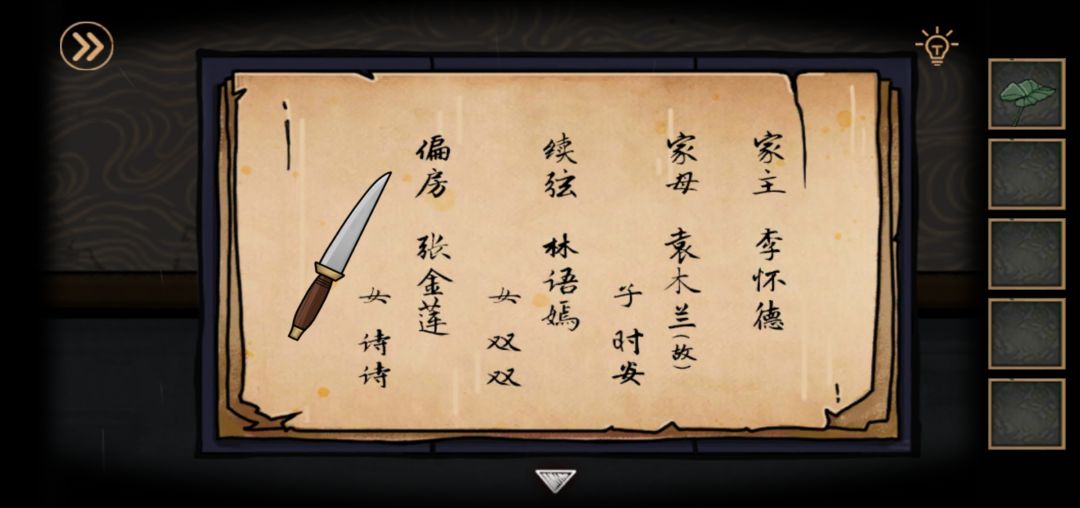 家主 李怀德
家母 袁木兰(故)
子 时安
续弦 林语嫣
女 双双
偏房 张金莲
女 诗诗